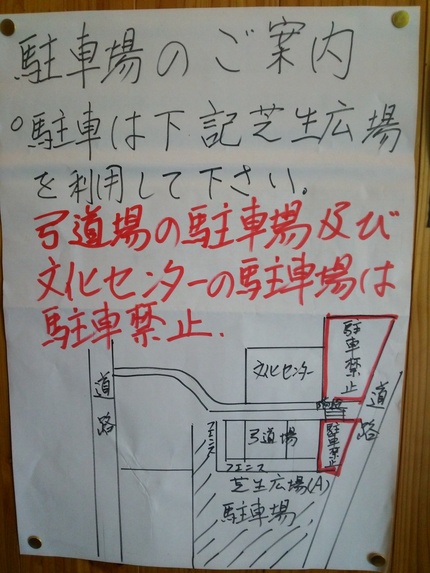 駐車場のご案内
○駐車は下記芝生広場
を利用して下さい。
弓道場の駐車場及び
文化センターの駐車場は
駐車禁止.
駐車禁止
文化センター
道路
道路
階段
フェンス
弓道場
駐車禁止
フェンス
芝生広場(A)
駐車場